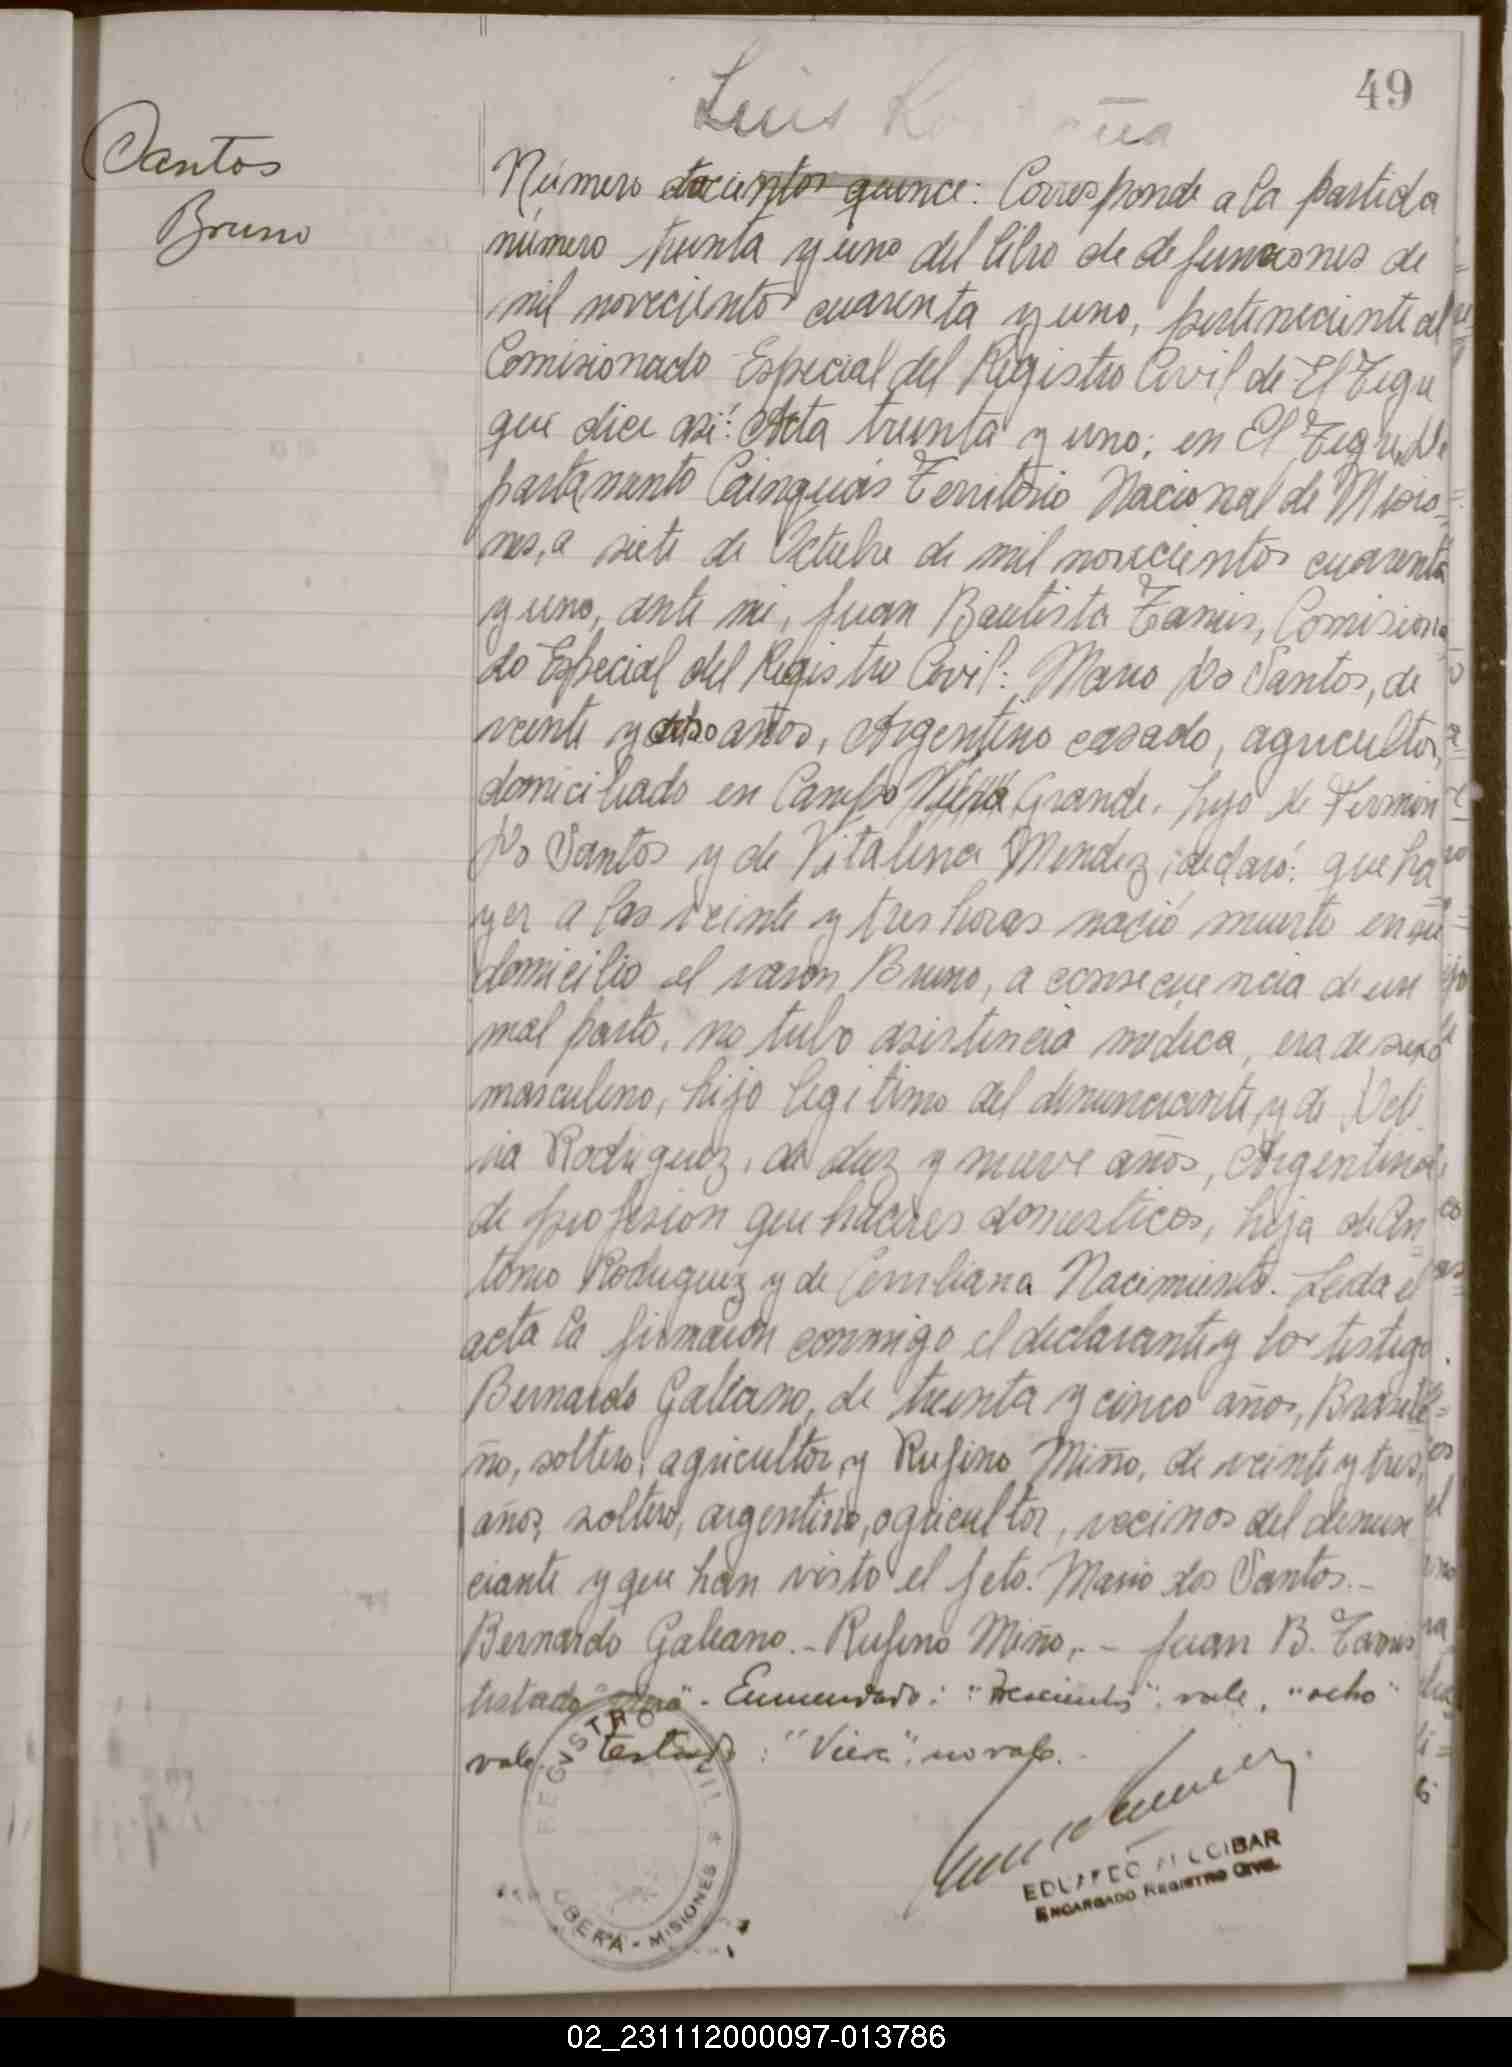 49
Luis
Santos
Bruno
Número trescientos quince: Corresponde a la partida
número treinta y uno del libro de defunciones de
mil novecientos cuarenta y uno, perteneciente al
Comisionado Especial del Registro Civil de El Tegu
que dice asi: Acta treinta y uno; en El Tegu, De
partamento Cainguás Territorio Nacional de Misio-
nes, a siete de Octubre de mil novecientos cuarenta
y uno, ante mi, Juan Bautista Tamis, Comisiona
do Especial del Registro Civil: Mario Do Santos, de
veinte y ocho años, Argentino casado, agricultor,
domiciliado en Campo Viera Grande, hijo de Fermin
Do Santos y de Vitalina Mendez, declaró: que ha
yer a las veinte y tres horas nació muerto en su
domicilio el varon Bruno, a consecuencia de un
mal parto, no tubo asistencia médica, era de sexo
masculino, hijo legitimo del denunciante, y de Deli
cia Rodriguez, de diez y nueve años, Argentina
de profesion que haceres domesticos, hija de An
tonio Rodriguez y de Emiliana Nacimiento. Leida el
acta la firmaron conmigo el declarante y los testigo
Bernardo Galeano, de treinta y cinco años, Brasile
ño, soltero, agricultor, y Rufino Miño, de veinte y tres,
años, soltero, argentino, agricultor, vecinos del denun
ciante y que han visto el feto. Mario dos Santos.-
Bernardo Galeano.- Rufino Miño,.- Juan B. Tamis
testado "Viera". Enmendado: "trescientos": vale, "ocho"
vale. testado: "Viera", no vale.-
REGISTRO CIVIL
OBERA - MISIONES
EDUARDO ALCIBAR
ENCARGADO REGISTRO CIVIL
02_231112000097-013786